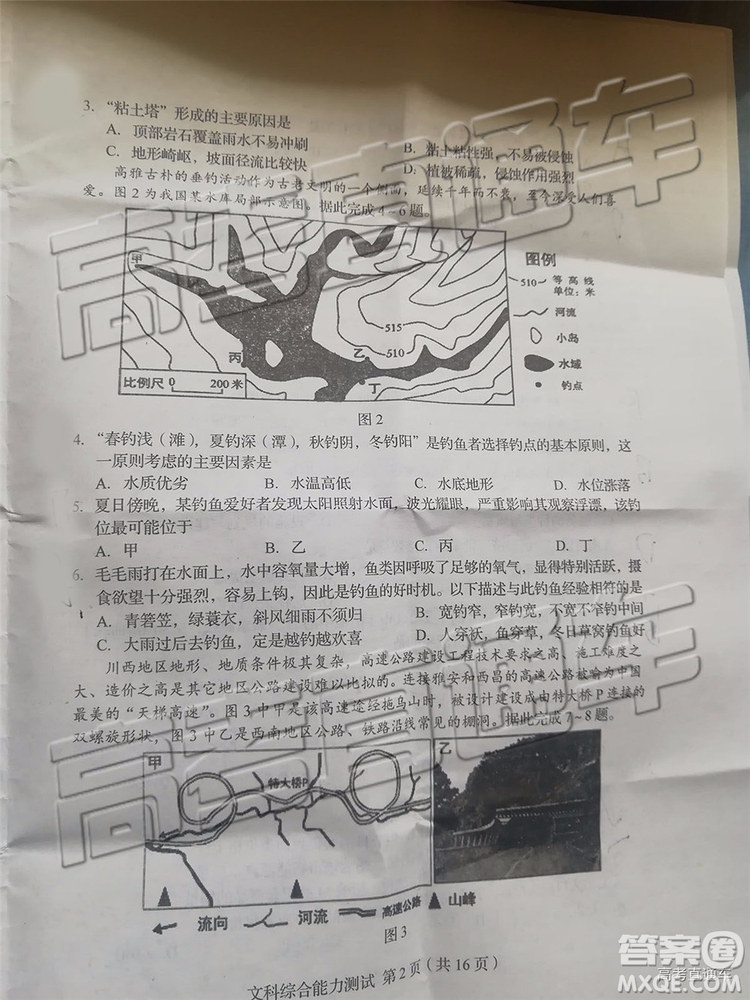 3. “粘土塔”形成的主要原因是
A. 顶部岩石覆盖雨水不易冲刷 B. 粘土粘性强，不易被侵蚀
C. 地形崎岖，坡面径流比较快 D. 植被稀疏，侵蚀作用强烈
高雅古朴的垂钓活动作为古老文明的一个侧面，延续千年而不衰，至今深受人们喜
爱。图2为我国某水库局部示意图。据此完成4~6题。
甲
515
510
乙
丙
丁
比例尺 0 200米
图例
510 等高线
单位：米
河流
小岛
水域
钓点
图2
4. “春钓浅（滩），夏钓深（潭），秋钓阴，冬钓阳”是钓鱼者选择钓点的基本原则，这
一原则考虑的主要因素是
A. 水质优劣 B. 水温高低 C. 水底地形 D. 水位涨落
5. 夏日傍晚，某钓鱼爱好者发现太阳照射水面，波光耀眼，严重影响其观察浮漂，该钓
位最可能位于
A. 甲 B. 乙 C. 丙 D. 丁
6. 毛毛雨打在水面上，水中容氧量大增，鱼类因呼吸了足够的氧气，显得特别活跃，摄
食欲望十分强烈，容易上钩，因此是钓鱼的好时机。以下描述与此钓鱼经验相符的是
A. 青箬笠，绿蓑衣，斜风细雨不须归 B. 宽钓窄，窄钓宽，不宽不窄钓中间
C. 大雨过后去钓鱼，定是越钓越欢喜 D. 人穿袄，鱼穿草，冬日草窝钓鱼好
川西地区地形、地质条件极其复杂，高速公路建设工程技术要求之高、施工难度之
大、造价之高是其它地区公路建设难以比拟的。连接雅安和西昌的高速公路被喻为中国
最美的“天梯高速”。图3中甲是该高速途经拖乌山时，被设计建设成由特大桥P连接的
双螺旋形状，图3中乙是西南地区公路、铁路沿线常见的棚洞。据此完成7~8题。
甲
特大桥P
乙
流向 河流 高速公路 山峰
图3
文科综合能力测试 第2页(共16页)
高考直通车
高考直通车
高考直通车
答案圈
MXQE.COM